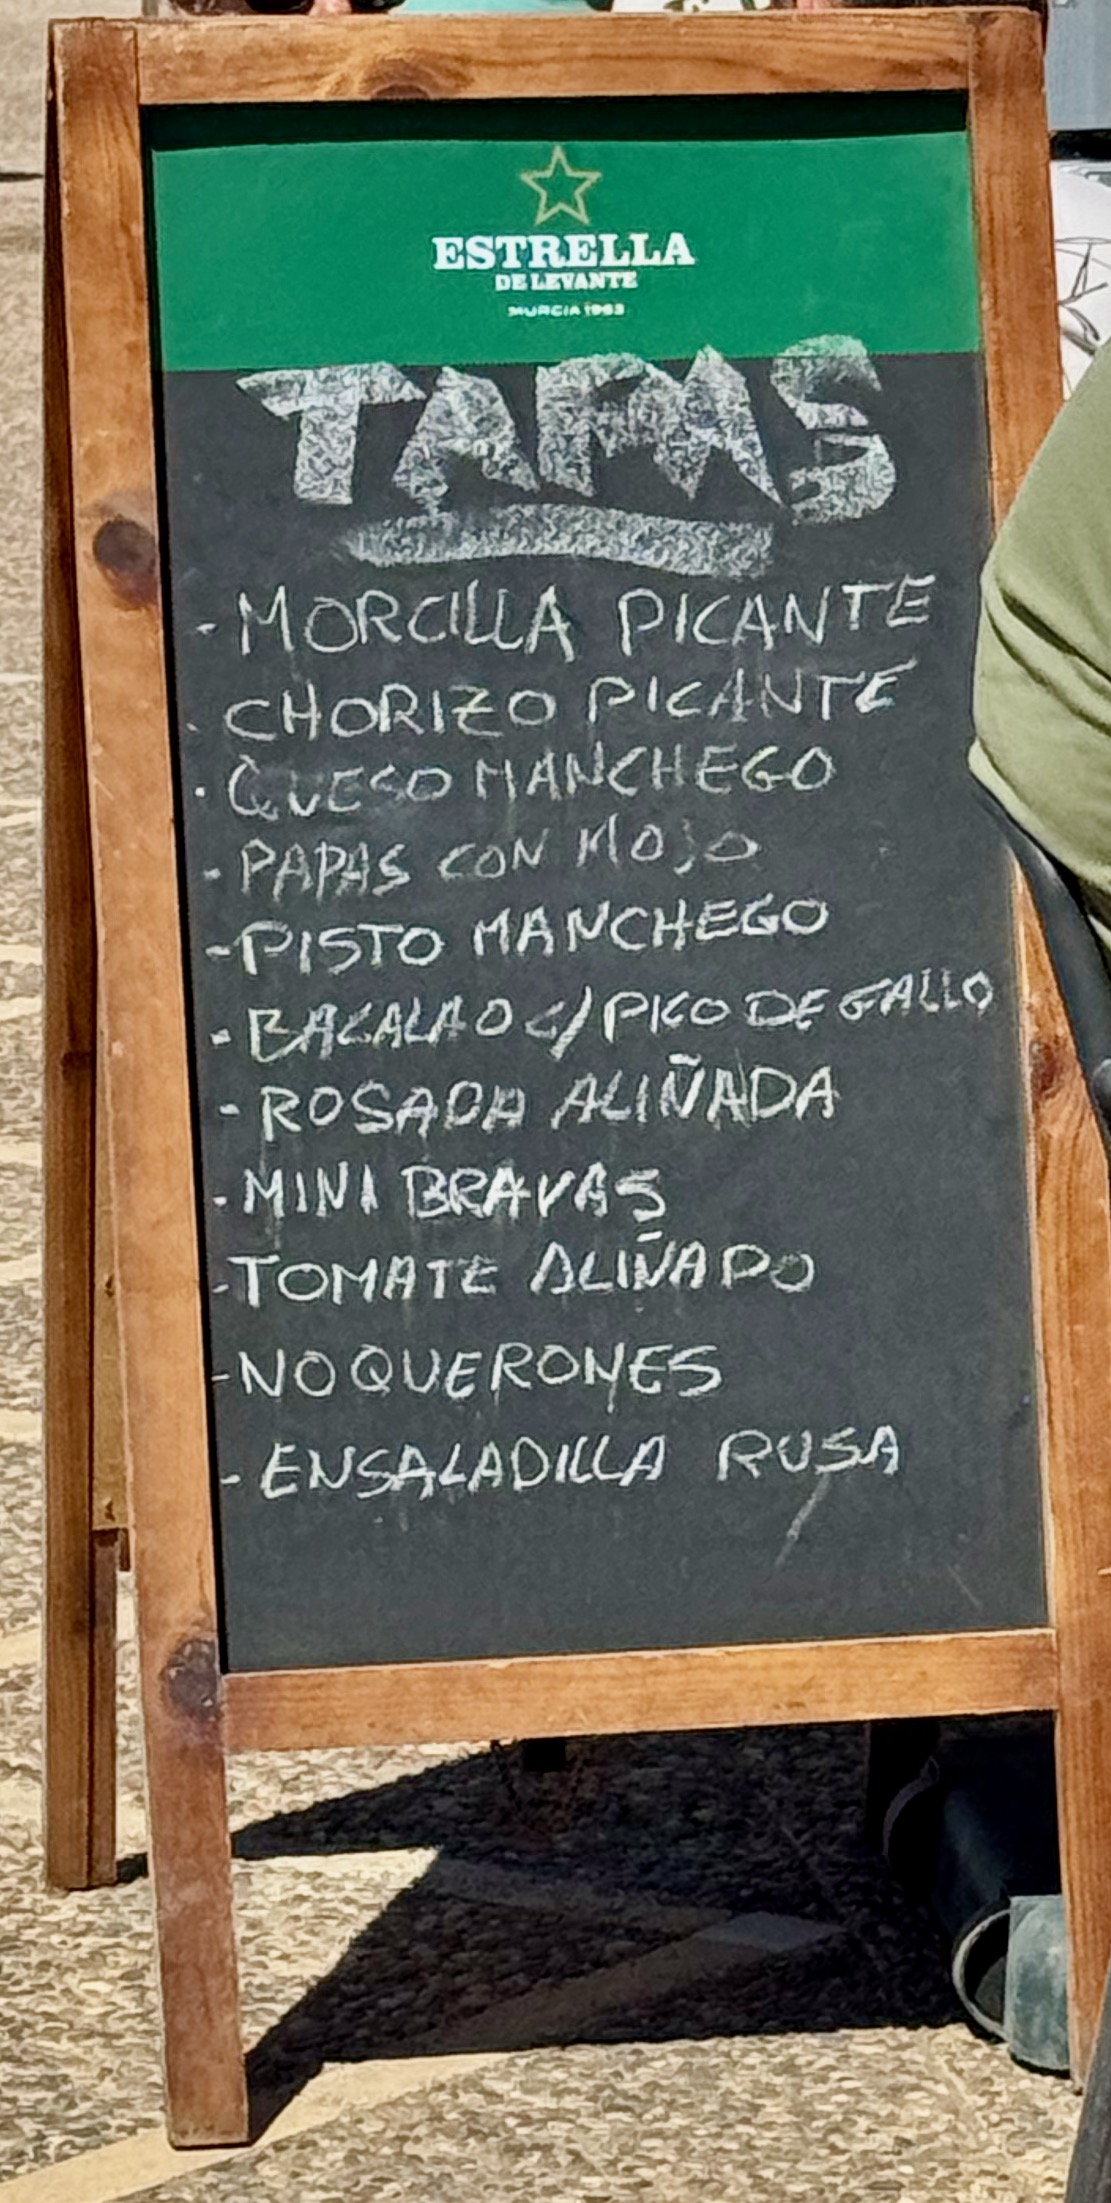 ESTRELLA
DE LEVANTE
MURCIA 1963
TAPAS
- MORCILLA PICANTE
· CHORIZO PICANTE
· QUESO MANCHEGO
- PAPAS CON MOJO
- PISTO MANCHEGO
- BACALAO C/ PICO DE GALLO
- ROSADA ALIÑADA
- MINI BRAVAS
- TOMATE ALIÑADO
- NOQUERONES
- ENSALADILLA RUSA